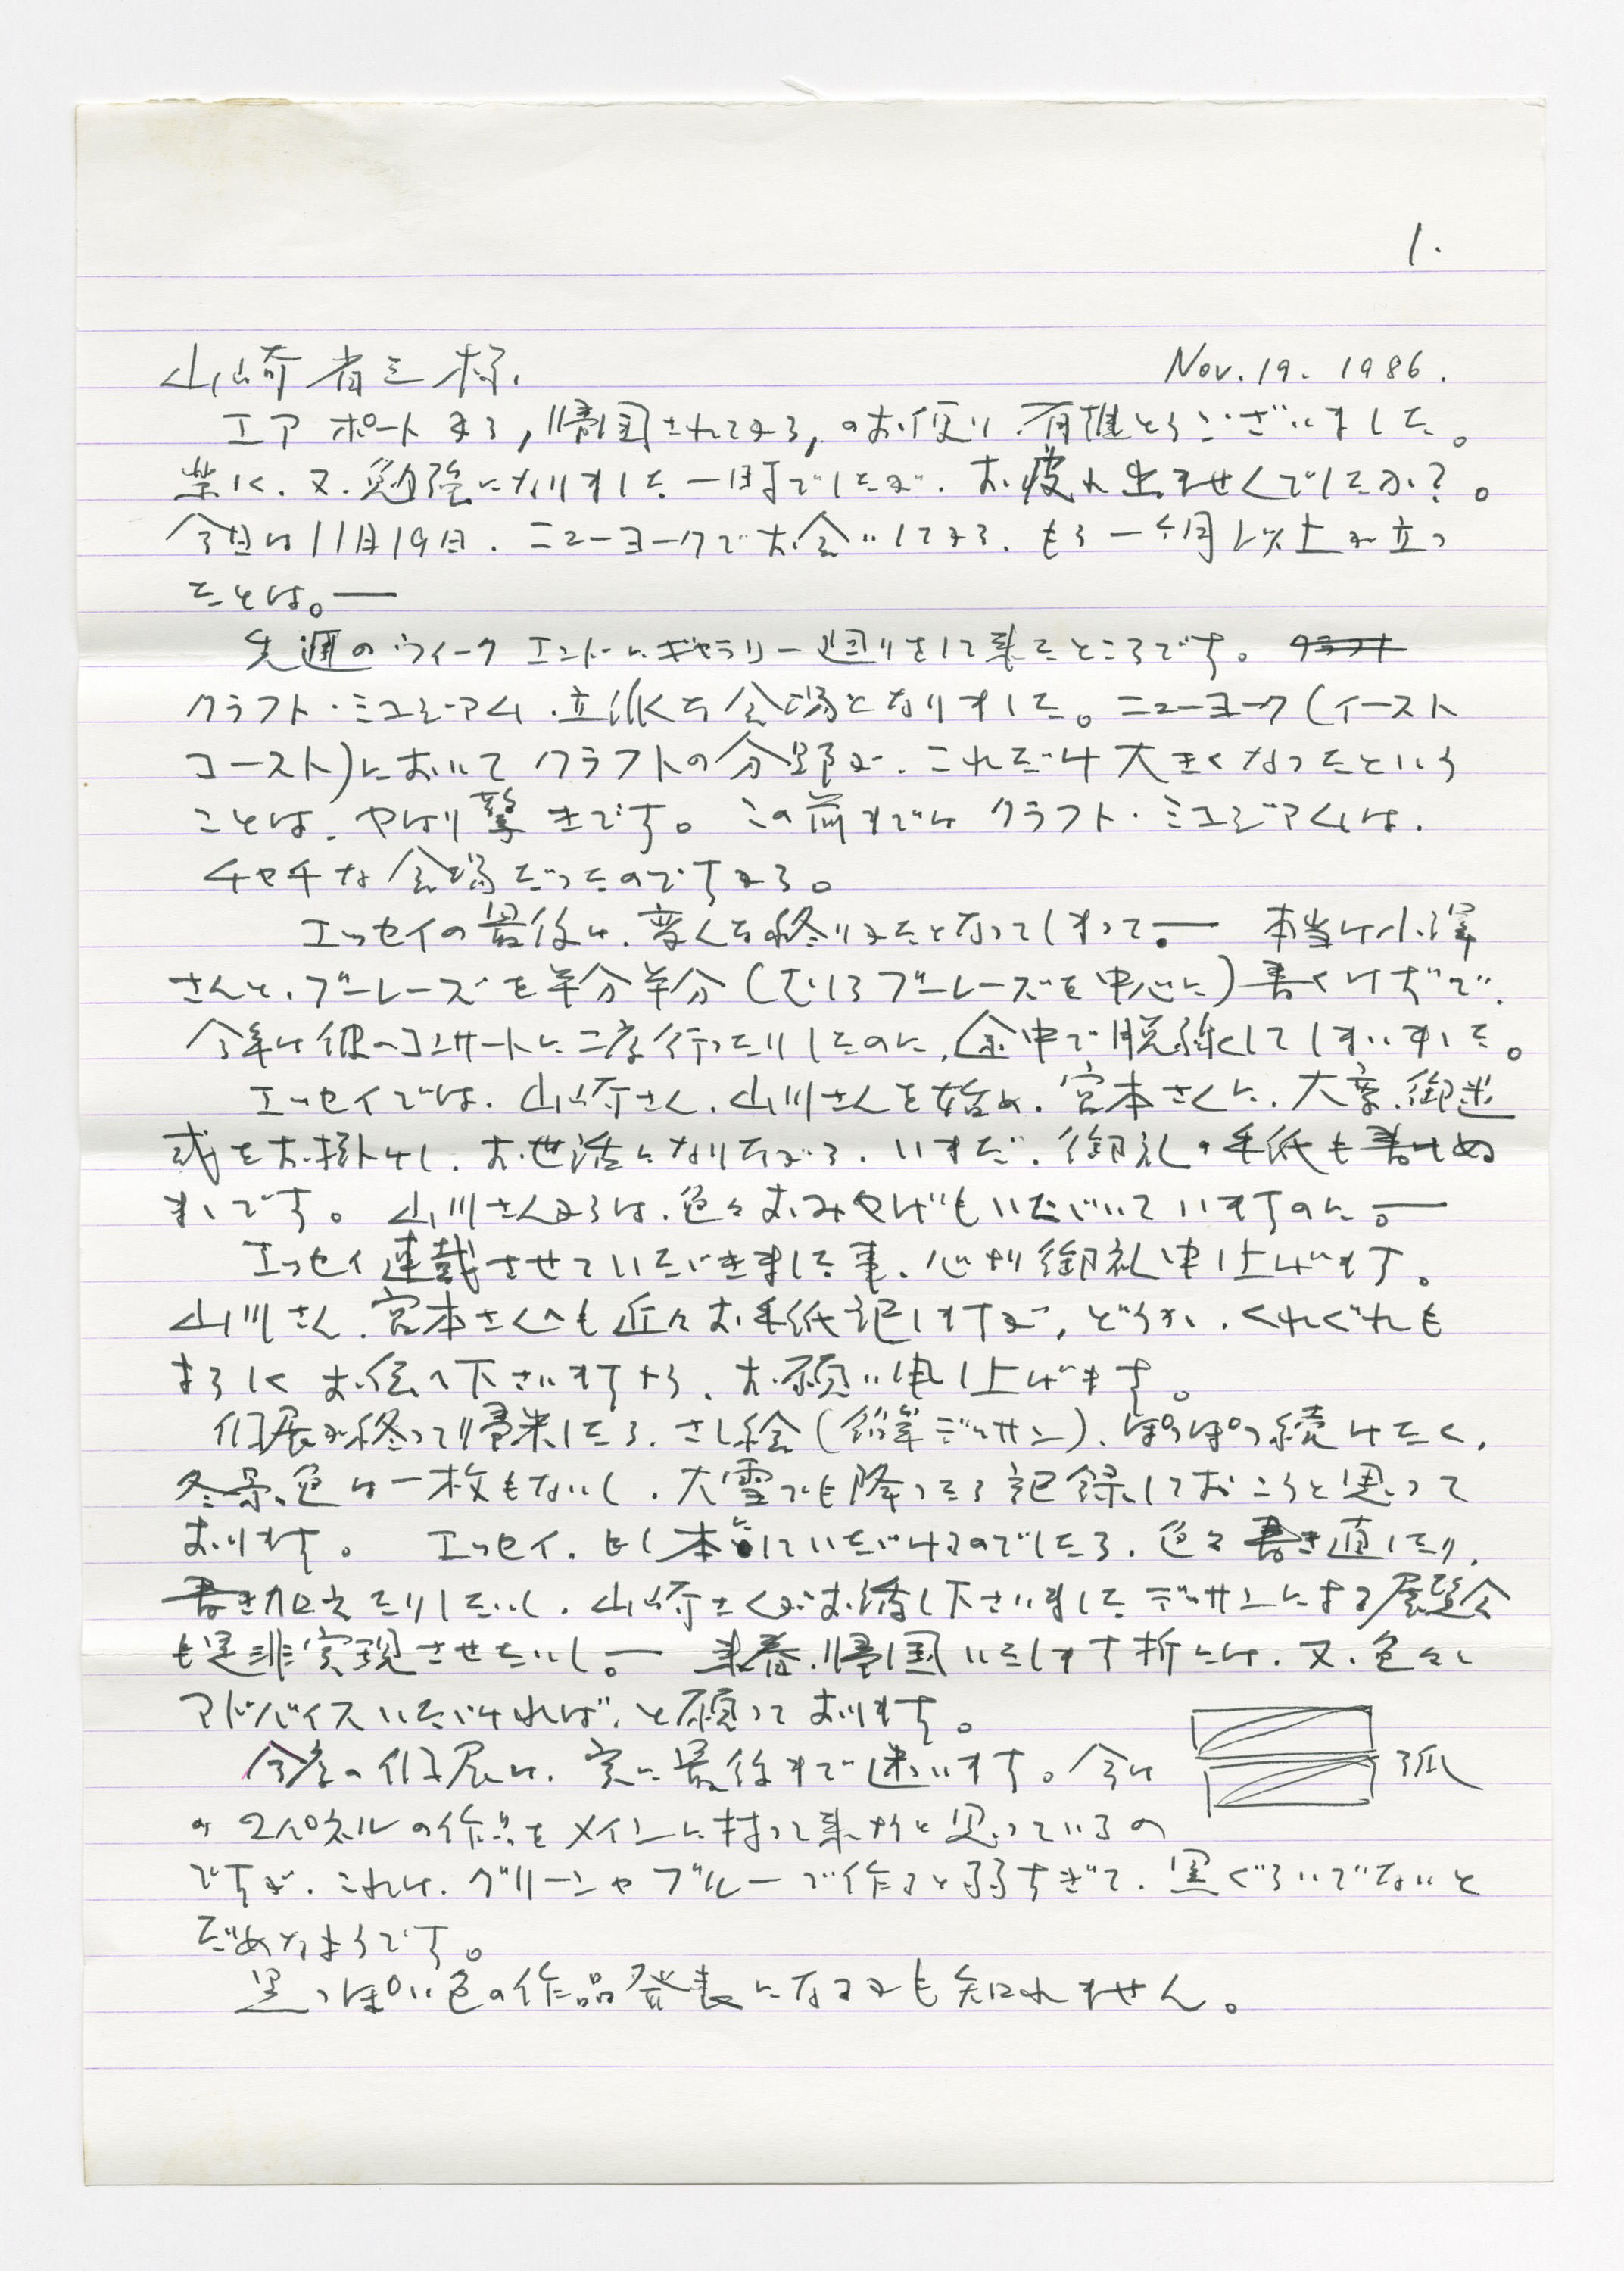 1.
山崎省三様、 Nov. 19. 1986.
エアポートから, 帰国されてから, のお便り、有難とうございました。
楽しく、又、勉強になりました一時でしたが、お疲れ出ませんでしたか?。
今日は11月19日、ニューヨークでお会いしてから、もう一ヶ月以上が立っ
たとは。―
先週のウィークエンドにギャラリー廻りをして来たところです。クラフト
クラフト・ミュジーアム、立派な会場となりました。ニューヨーク(イースト
コースト)において クラフトの分野が、これだけ大きくなったという
ことは、やはり驚きです。この前までは クラフト・ミュジアムは、
チャチな会場だったのですから。
エッセイの最後は、変な終りかたとなってしまって。― 本当は小澤
さんと、ブーレーズを半分半分(むしろブーレーズを中心に)書くはずで、
今年は彼のコンサートに二度行ったりしたのに、途中で脱線してしまいました。
エッセイでは、山崎さん、山川さんを始め、宮本さんに、大変、御迷
惑をお掛けし、お世話になりながら、いまだ、御礼の手紙も書けぬ
ままです。山川さんからは、色々おみやげもいただいていますのに。―
エッセイ連載させていただきました事、心から御礼申し上げます。
山川さん、宮本さんへも近々お手紙記しますが、どうか、くれぐれも
よろしくお伝へ下さいますよう、お願い申し上げます。
個展が終って帰米したら、さし絵(鉛筆デッサン)、ぽつぽつ続けたく、
冬景色は一枚もないし、大雪でも降ったら記録しておこうと思って
おります。 エッセイ、もし本にしていただけるのでしたら、色々書き直したり、
書き加えたりしたいし、山崎さんがお話し下さいましたデッサンによる展覧会
も是非実現させたいし。― 来春、帰国いたします折には、又、色々と
アドバイスいただければ、と願っております。
今度の個展は、実に最後まで迷います。今は 弧
の2パネルの作品をメインに持って来ようと思っているの
ですが、これは、グリーンやブルーで作ると弱すぎて、黒ぐらいでないと
だめなようです。
黒っぽい色の作品発表になるかも知れません。